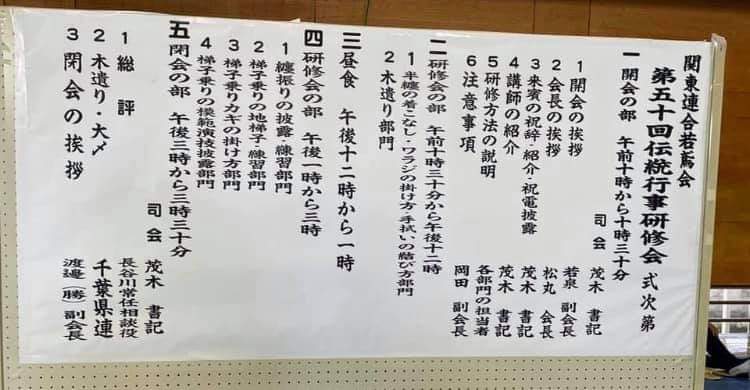 関東連合若鳶会
第五十回伝統行事研修会 式次第
一 開会の部 午前十時から十時三十分
司会 茂木 書記
1 開会の挨拶 若泉 副会長
2 会長の挨拶 松丸 会長
3 来賓の祝辞・紹介・祝電披露 茂木 書記
4 講師の紹介 茂木 書記
5 研修方法の説明 各部門の担当者
6 注意事項 岡田 副会長
二 研修会の部 午前十時三十分から午後十二時
1 半纏の着こなし・ワラジの掛け方・手拭いの結び方部門
2 木遣り部門
三 昼食 午後十二時から一時
四 研修会の部 午後一時から三時
1 纏振りの披露・練習部門
2 梯子乗りの地梯子・練習部門
3 梯子乗りカギの掛け方部門
4 梯子乗りの模範演技披露部門
五 閉会の部 午後三時から三時三十分
司会 茂木 書記
1 総評 長谷川常任相談役
2 木遣り・大〆 千葉県連
3 閉会の挨拶 渡邉(勝)副会長